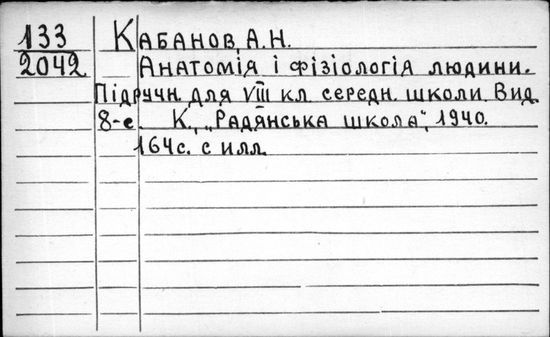 133 Кабанов, А.Н.
2042 Анатомія і фізіологія людини.
Підручн. для VIII кл. середн. школи. Вид.
8-е. К., „Радянська школа", 1940.
164с. с илл.